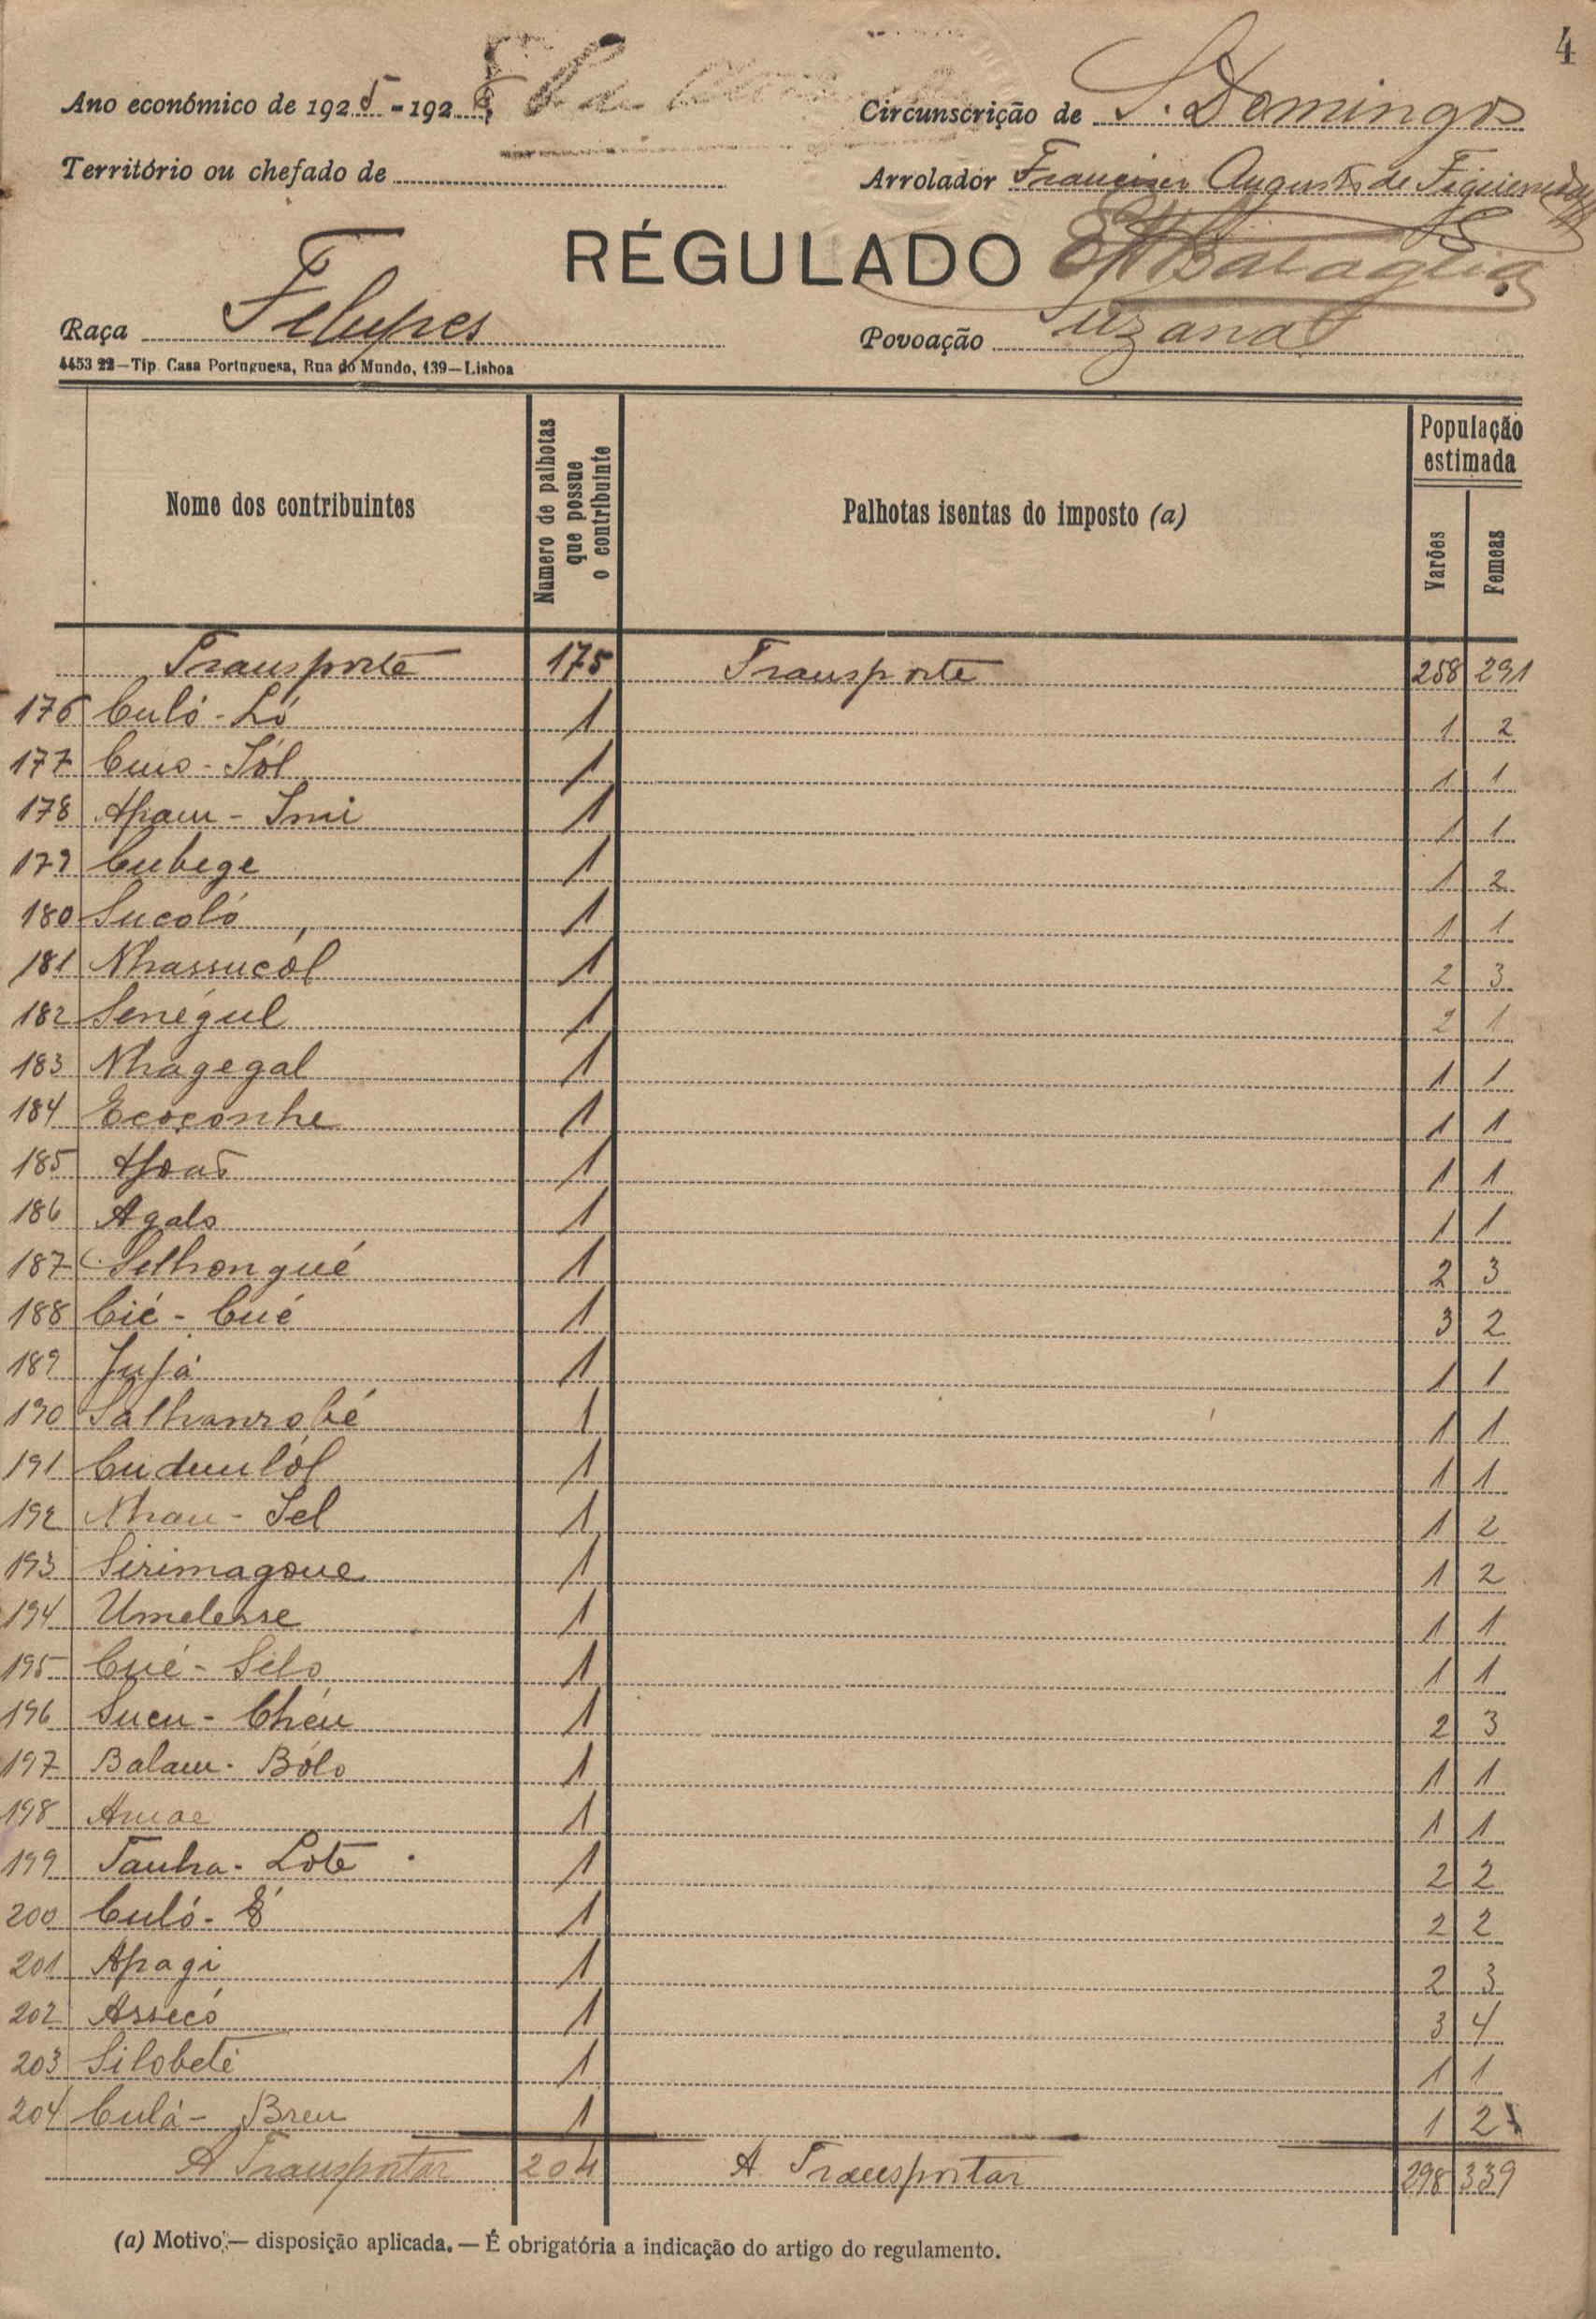 4
Ano económico de 1925-1926 Circunscrição de S. Domingos
Território ou chefado de Arrolador Francisco Augusto de Figueiredo
RÉGULADO
Raça Felupes Povoação Suzana
4453 22—Tip. Casa Portuguesa, Rua do Mundo, 139—Lisboa
Nome dos contribuintes Numero de palhotas que possue o contribuinte Palhotas isentas do imposto (a) População estimada Varões Femeas
Transporte 175 Transporte 258 291
176 Culó-Ló 1 1 2
177 Cuio-Jól 1 1 1
178 Apam-Imi 1 1 1
179 Cubege 1 1 2
180 Sucoló 1 1 1
181 Nhassucól 1 2 3
182 Senégul 1 2 1
183 Nhagegal 1 1 1
184 Ecoçonhe 1 1 1
185 Apoas 1 1 1
186 Agalo 1 1 1
187 Selhongué 1 2 3
188 Cié-Cué 1 3 2
189 Jujá 1 1 1
190 Salhanrobé 1 1 1
191 Cudumlól 1 1 1
192 Nhau-Sel 1 1 2
193 Sirimagoue 1 1 2
194 Umelesse 1 1 1
195 Cué-Silo 1 1 1
196 Sucu-Chéu 1 2 3
197 Balam-Bólo 1 1 1
198 Amae 1 1 1
199 Tanha-Lote 1 2 2
200 Culó-É 1 2 2
201 Apagi 1 2 3
202 Assecó 1 3 4
203 Silobeté 1 1 1
204 Culá-Breu 1 1 2
A Transportar 204 A Transportar 298 339
(a) Motivo — disposição aplicada. — É obrigatória a indicação do artigo do regulamento.